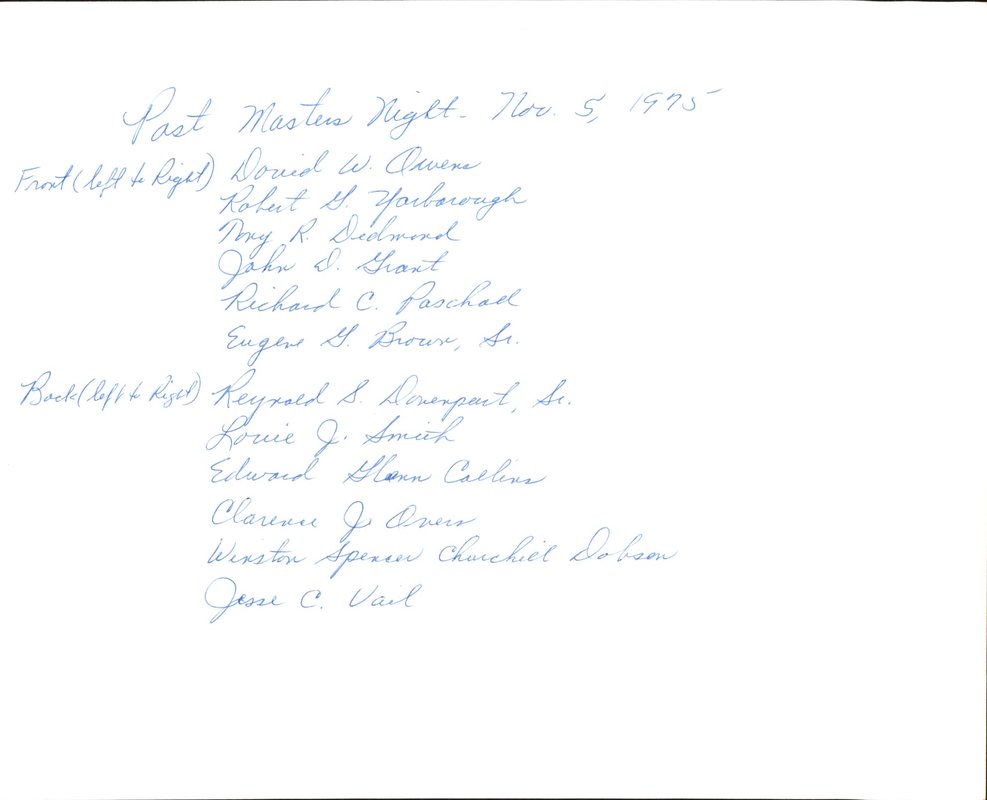 Past Masters Night - Nov. 5, 1975
Front (left to Right) David W. Owens
Robert G. Yarborough
Tony R. Dedmond
John D. Grant
Richard C. Paschall
Eugene G. Brown, Sr.
Back (left to Right) Reynold S. Davenport, Sr.
Louie J. Smith
Edward Glenn Collins
Clarence J. Overs
Winston Spencer Churchill Dobson
Jesse C. Vail